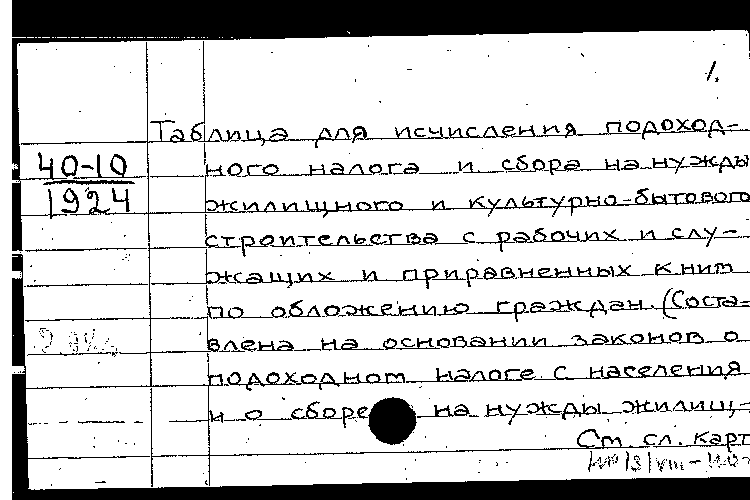 1.
Таблица для исчисления подоход-
40-10
1924
ного налога и сбора на нужды
жилищного и культурно-бытового
строительства с рабочих и слу-
жащих и приравненных к ним
по обложению граждан. (Соста-
влена на основании законов о
подоходном налоге с населения
и о сборе на нужды жилищ-
См. сл. карт